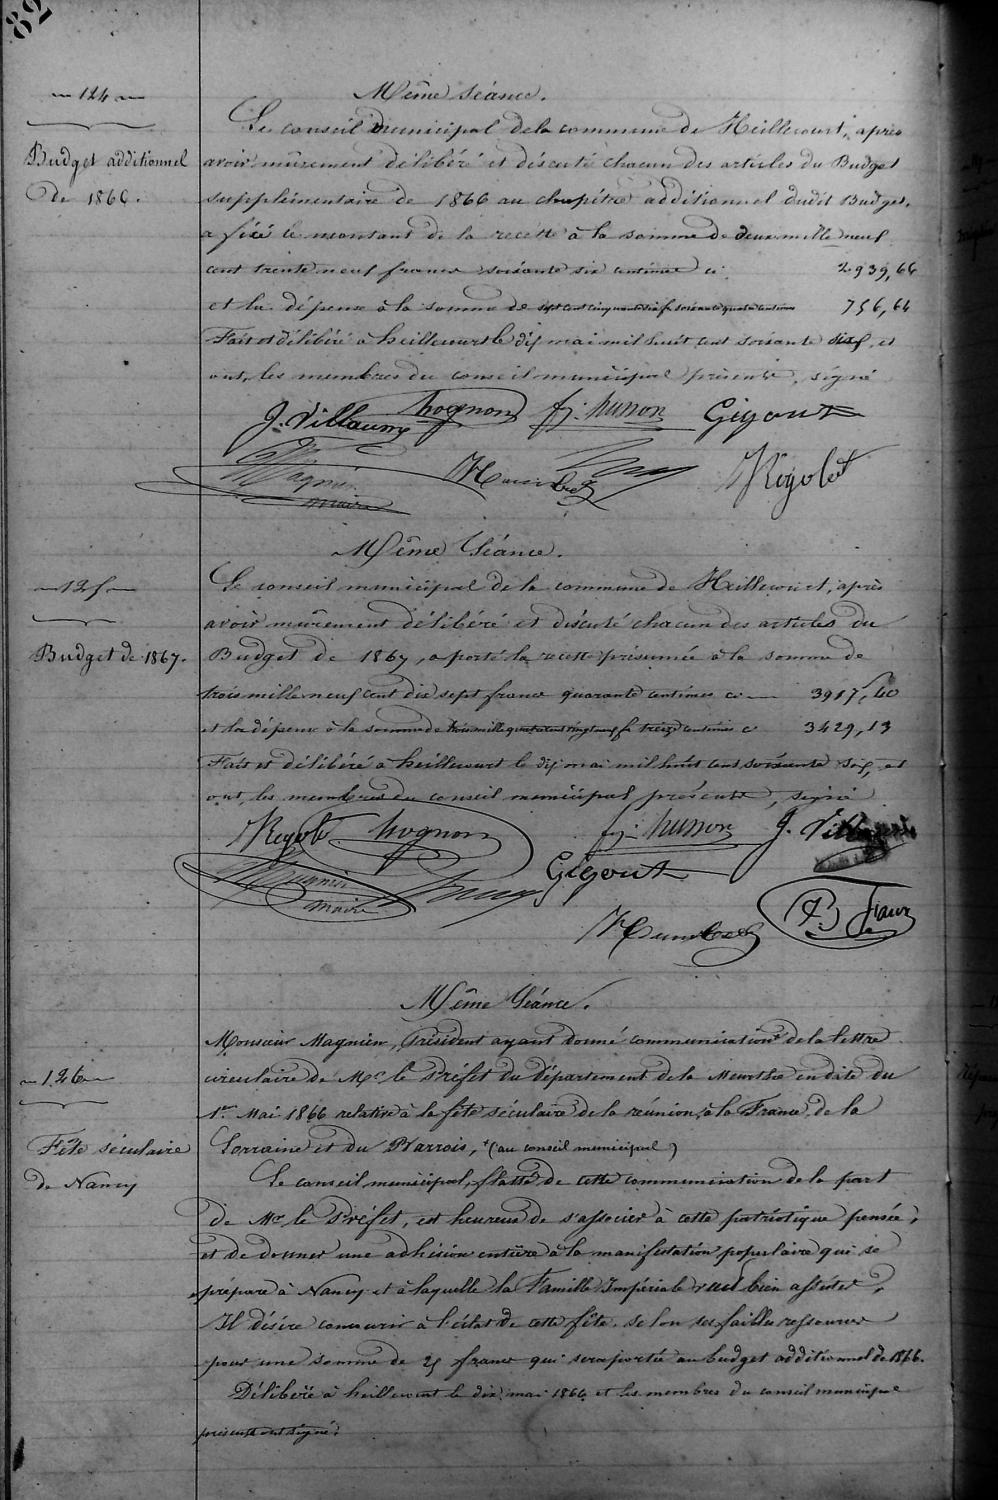 82
124
Même séance.
Le conseil municipal de la commune de Heillecourt, après
Budget additionnel
avoir mûrement délibéré et discuté chacun des articles du Budget
de 1866.
supplémentaire de 1866 au chapitre additionnel dudit Budget,
a fixé le montant de la recette à la somme de deux mille neuf
cent trente neuf francs soixante six centimes ci 2939,66
et la dépense à la somme de sept cent cinquante six f soixante quatre centimes 756,64
Fait et délibéré à heillecourt le dix mai mil huit cent soixante six, et
ont, les membres du conseil municipal présents, signé
J. Villaume hognon fj. husson Gigout
Magnien
maire
Rigolet
Même Séance.
125
Le conseil municipal de la commune de Heillecourt, après
avoir mûrement délibéré et discuté chacun des articles du
Budget de 1867.
Budget de 1867, a porté la recette présumée à la somme de
trois mille neuf cent dix sept francs quarante centimes ci 3917,40
et la dépense à la somme de trois mille quatre cent vingt neuf f treize centimes ci 3429,13
Fait et délibéré à heillecourt le dix mai mil huit cent soixante six, et
ont, les membres du conseil municipal présents, signé
Rigolet hognon fj. husson J. Villaume
Magnien
maire
Gigout
Même Séance.
Monsieur Magnien, Président ayant donné communication de la lettre
126
circulaire de Mr. le Préfet du département de la Meurthe en date du
1er Mai 1866 relative à la fête séculaire de la réunion, à la France, de la
Fête séculaire
Lorraine et du Barrois, + (au conseil municipal)
de Nancy
Le conseil municipal, flatté de cette communication de la part
de Mr le Préfet, est heureux de s'associer à cette patriotique pensée,
et de donner une adhésion entière à la manifestation populaire qui se
prépare à Nancy et à laquelle la Famille Impériale veut bien assister,
Il désire concourir à l'éclat de cette fête selon ses faibles ressources
pour une somme de 25 francs qui sera portée au budget additionnel de 1866.
Délibéré à heillecourt le dix mai 1866 et les membres du conseil municipal
présents ont signé.